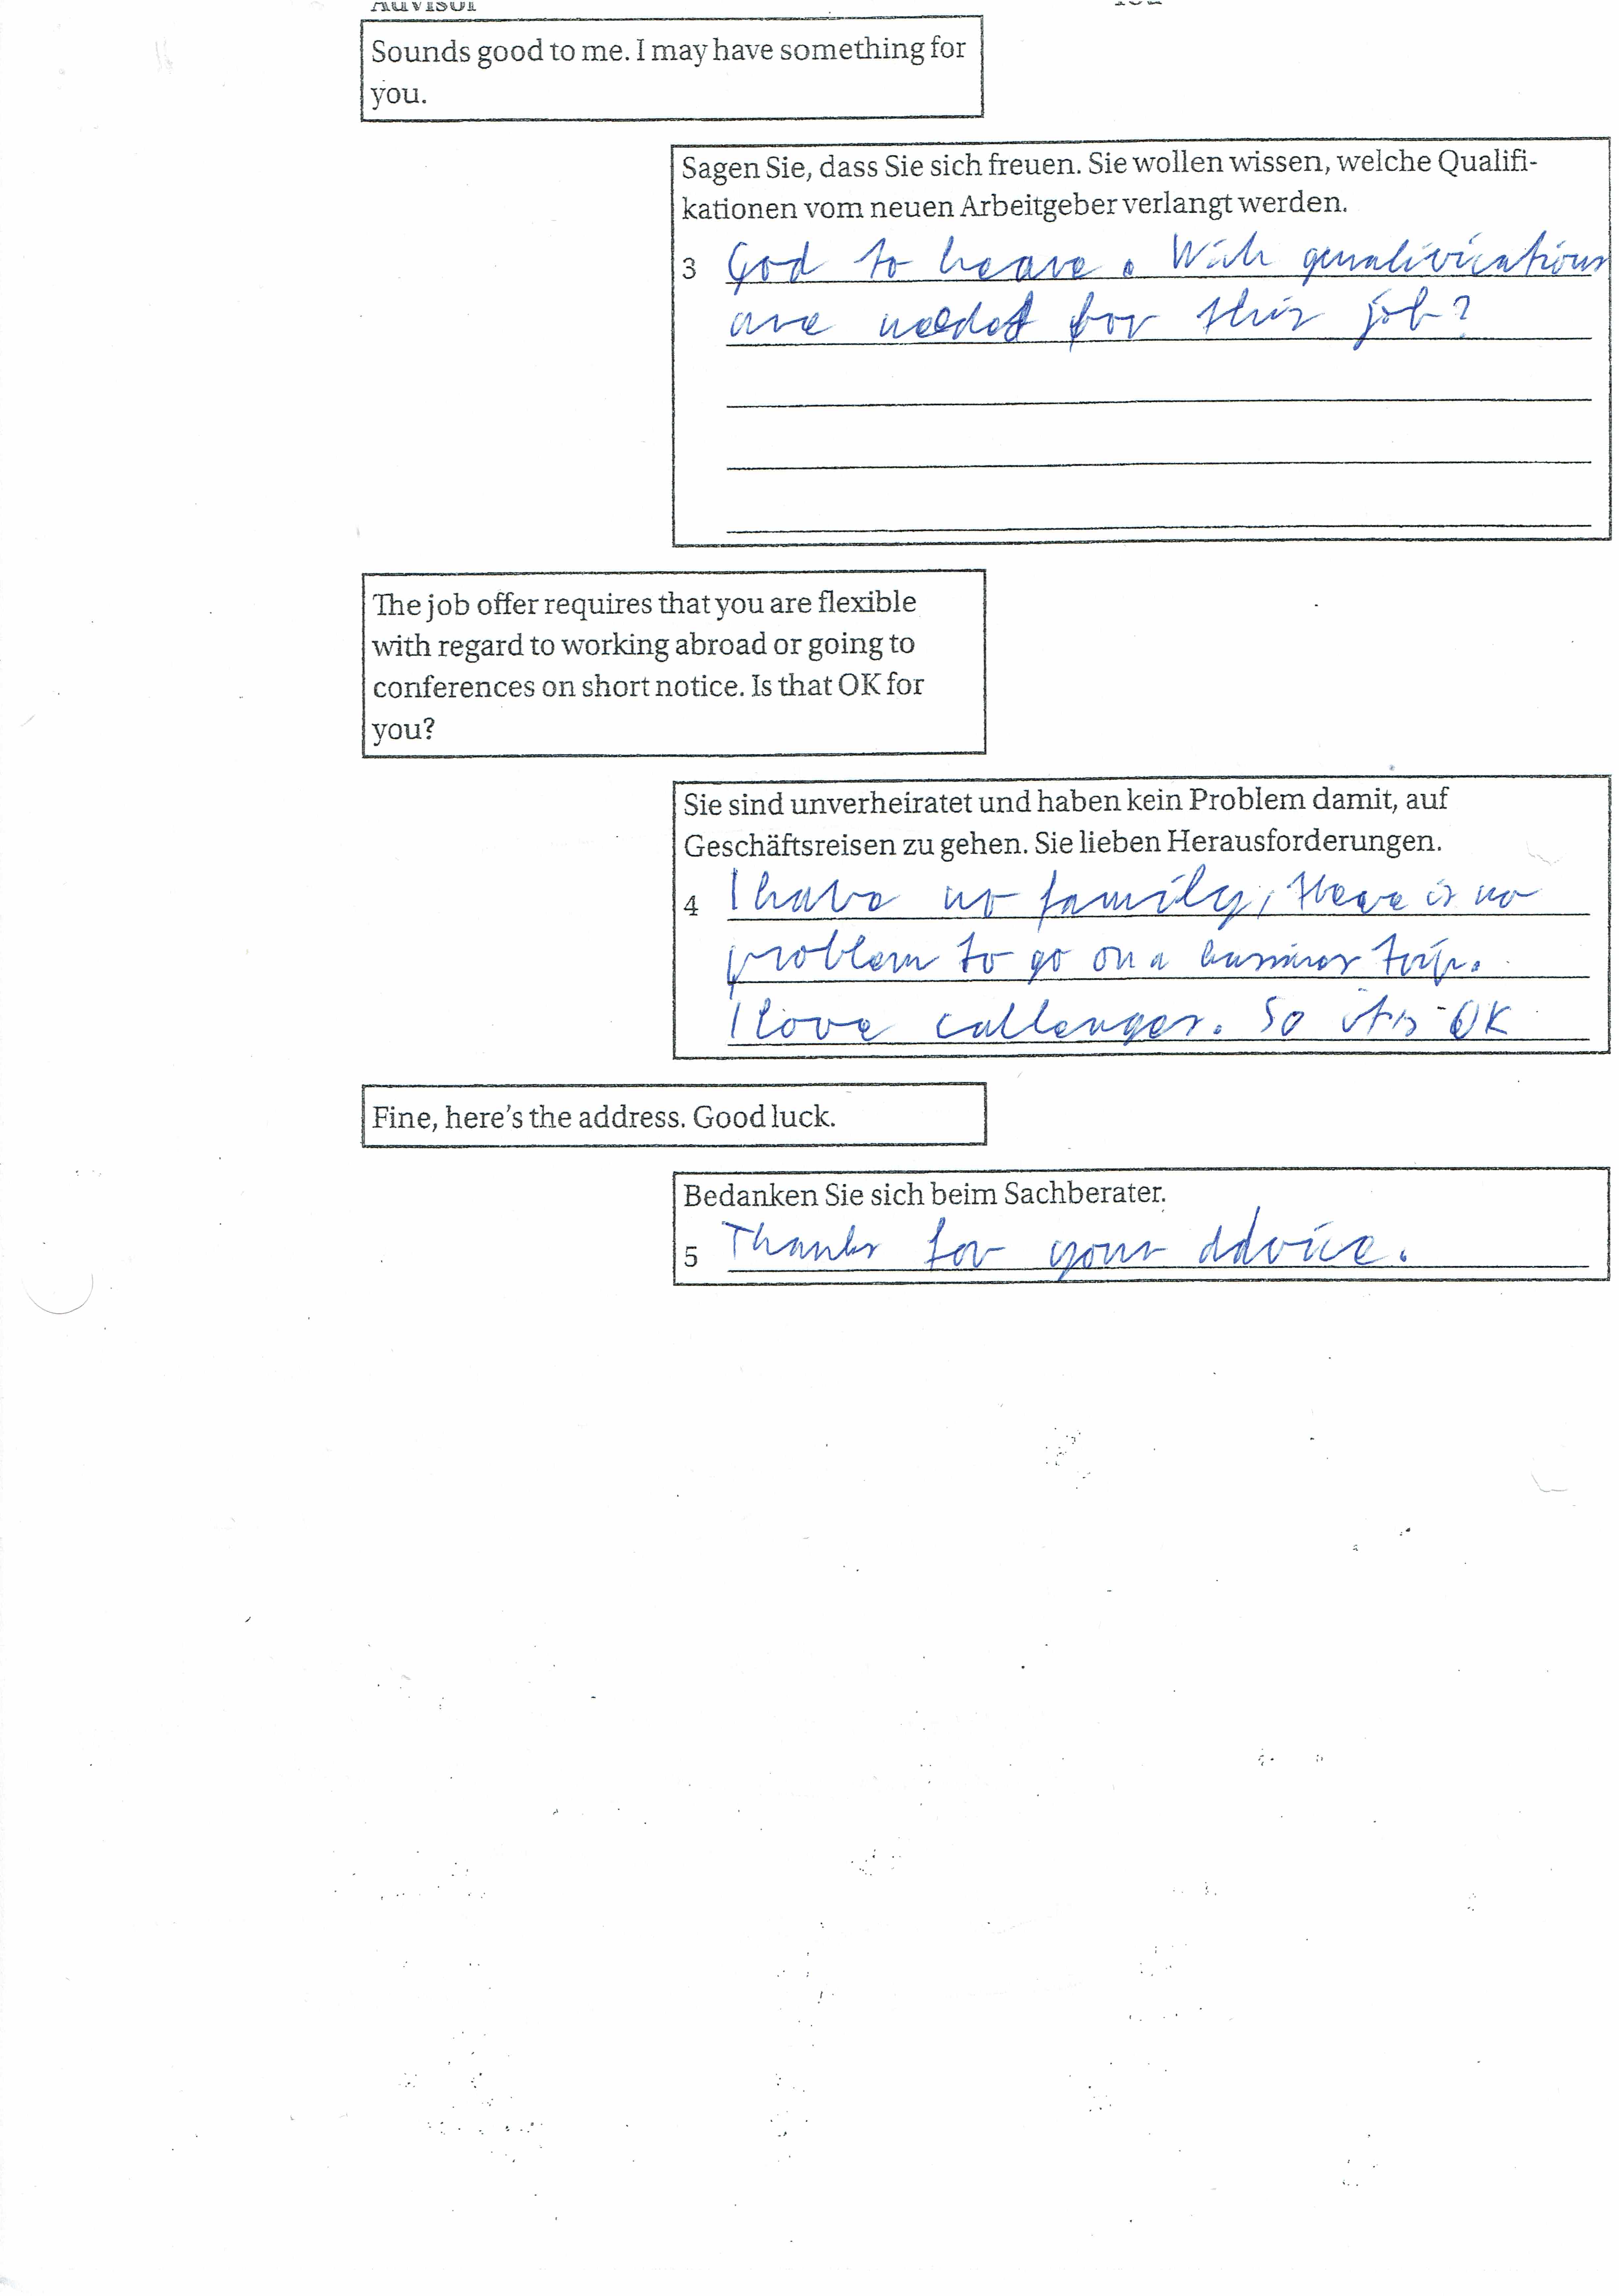 Advisor You
Sounds good to me. I may have something for
you.
Sagen Sie, dass Sie sich freuen. Sie wollen wissen, welche Qualifi-
kationen vom neuen Arbeitgeber verlangt werden.
3 God to heare. Wich qualivications
are needed for this job?
The job offer requires that you are flexible
with regard to working abroad or going to
conferences on short notice. Is that OK for
you?
Sie sind unverheiratet und haben kein Problem damit, auf
Geschäftsreisen zu gehen. Sie lieben Herausforderungen.
4 I have no family, there is no
problem to go on a trip.
I love callenges. So it is OK
Fine, here's the address. Good luck.
Bedanken Sie sich beim Sachberater.
5 Thanks for your advice.